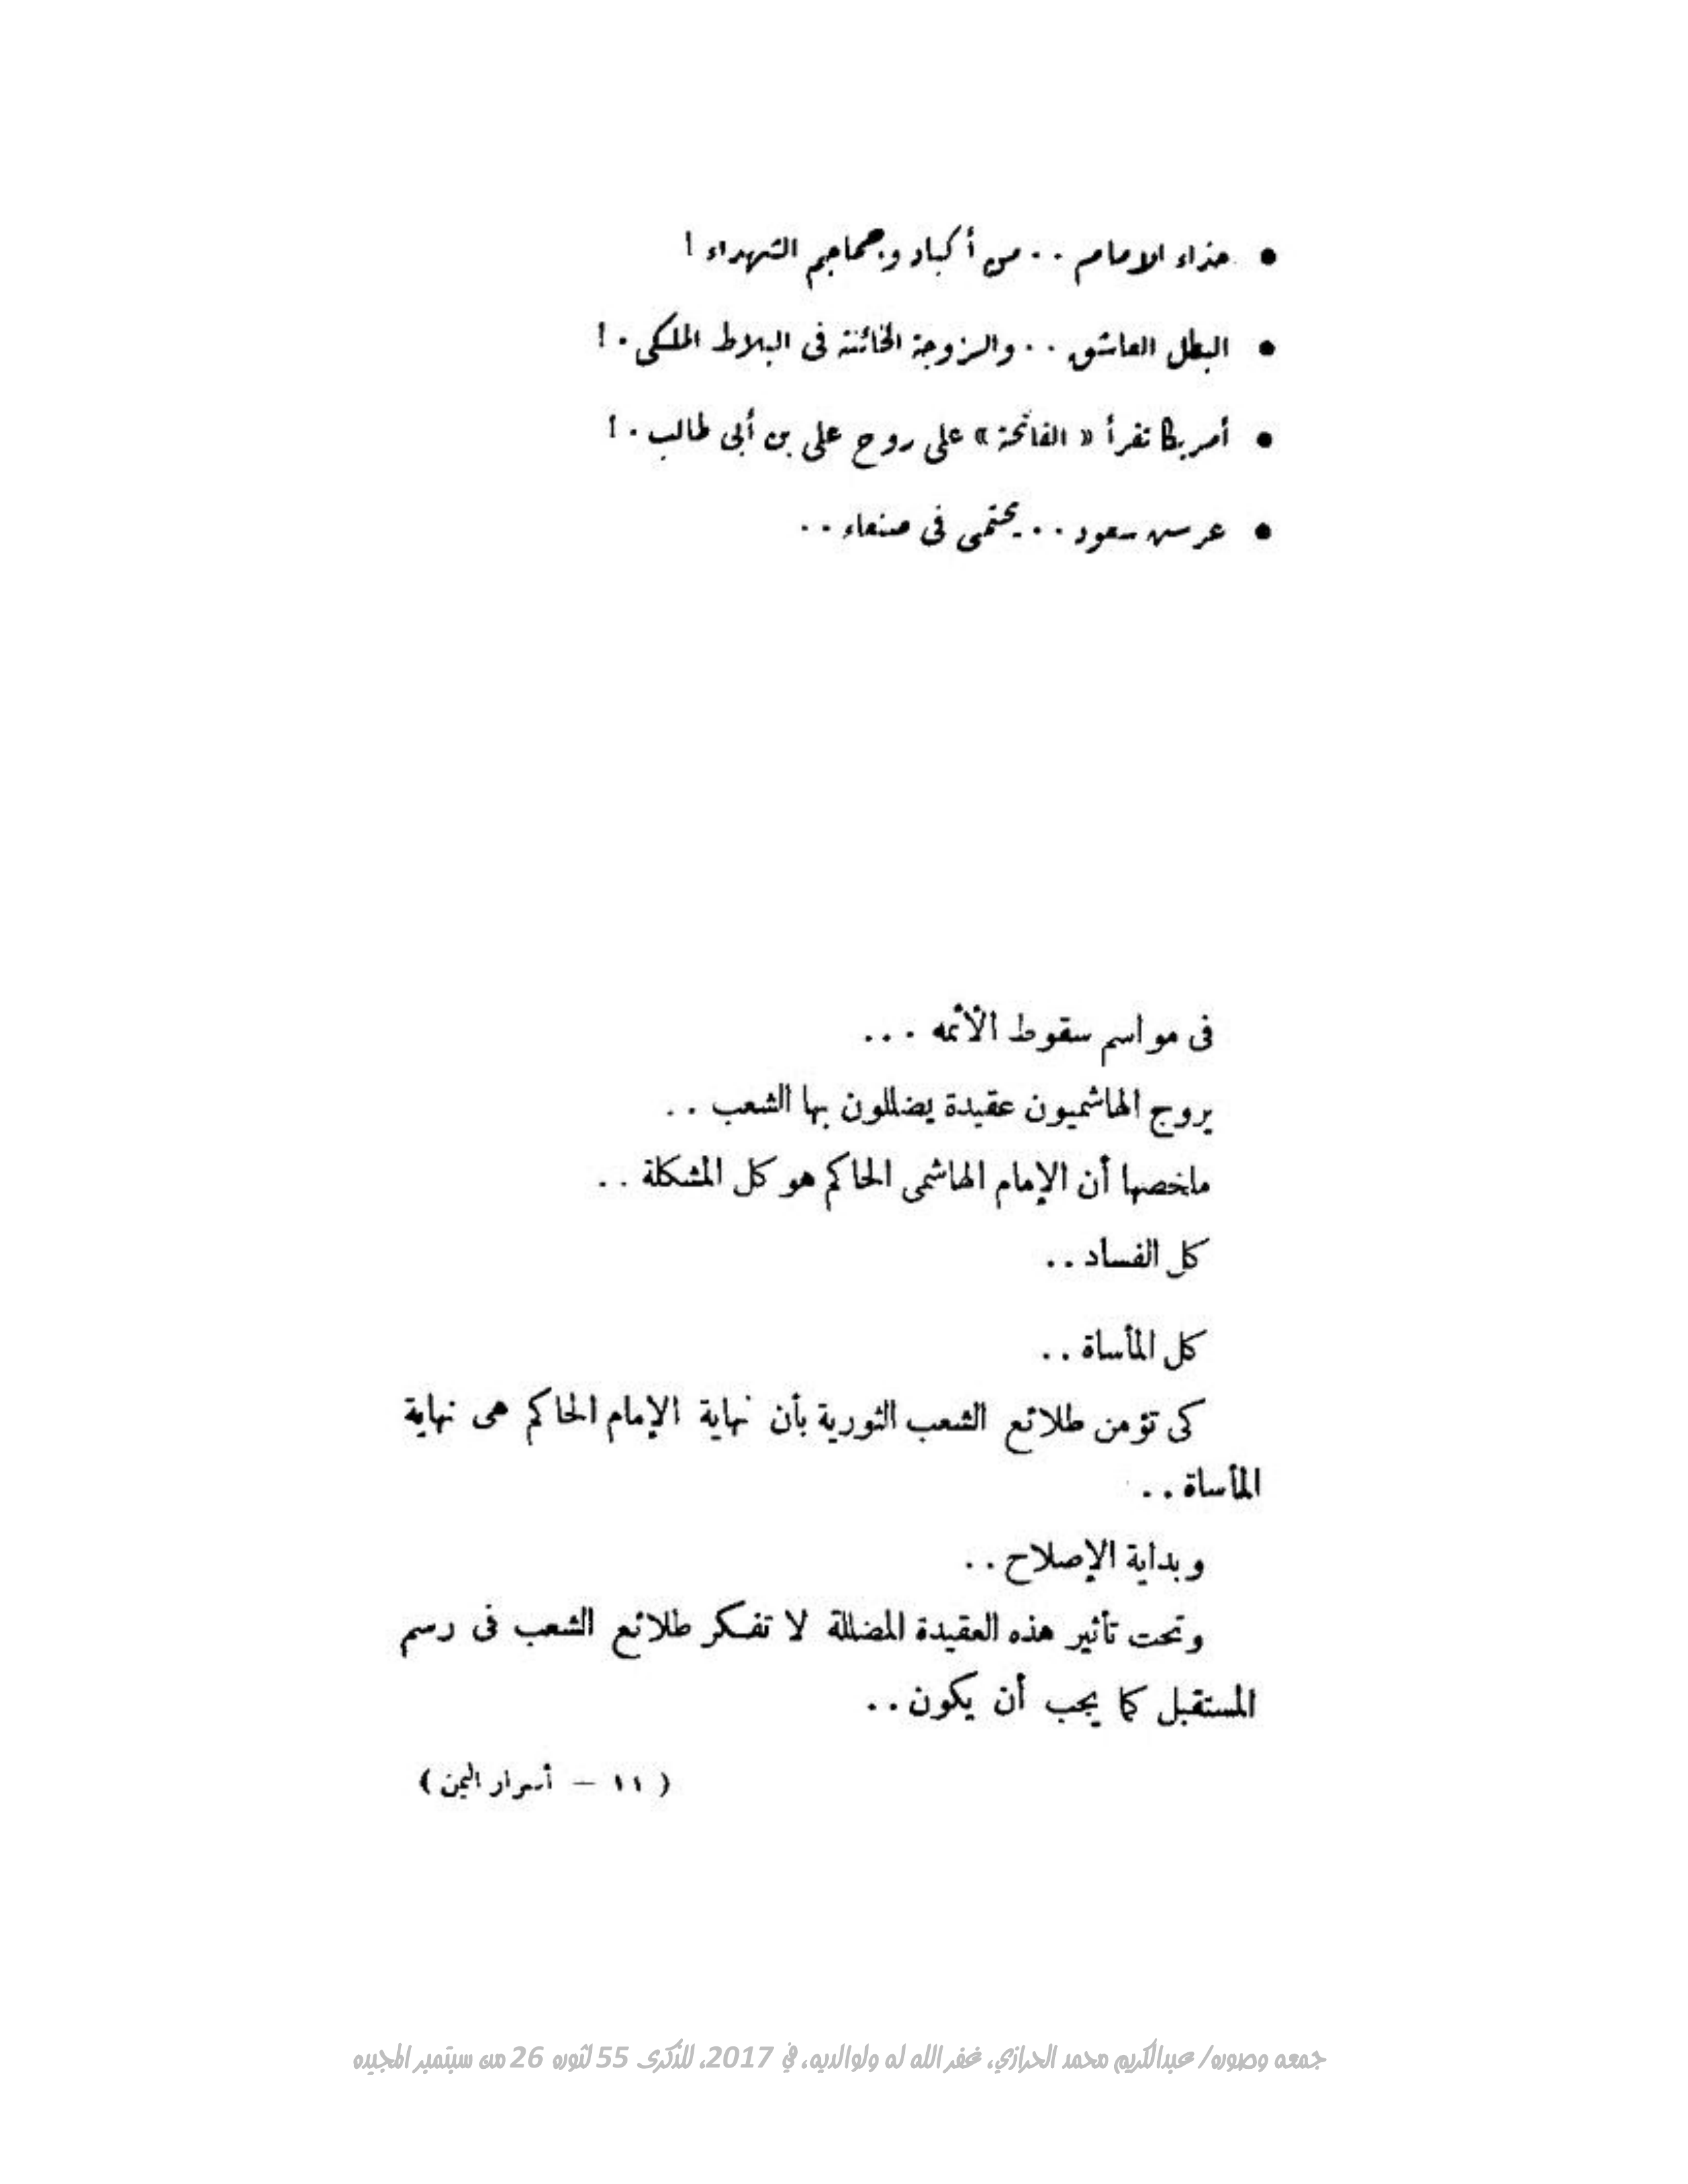 • حذاء الامام . . من أكباد وجماجم الشهداء !
• البطل العاشق . . والزوجة الخائنة فى البلاط الملكى . !
• أمريكا تقرأ « الفاتحة » على روح على بن أبى طالب . !
• عرس سعود . . يختمى فى صنعاء . .
فى مواسم سقوط الأئمه . . .
يروج الهاشميون عقيدة يضللون بها الشعب . .
ملخصها أن الإمام الهاشمى الحاكم هو كل المشكلة . .
كل الفساد . .
كل المأساة . .
كى تؤمن طلائع الشعب الثورية بأن نهاية الإمام الحاكم هى نهاية
المأساة . .
وبداية الإصلاح . .
وتحت تأثير هذه العقيدة المضللة لا تفكر طلائع الشعب فى رسم
المستقبل كما يجب أن يكون . .
( ١١ — أسرار اليمن )
جمعه وصوره/ عبدالكريم محمد الحرازي، غفر الله له ولوالديه، في 2017، للذكرى 55 لثوره 26 من سبتمبر المجيده